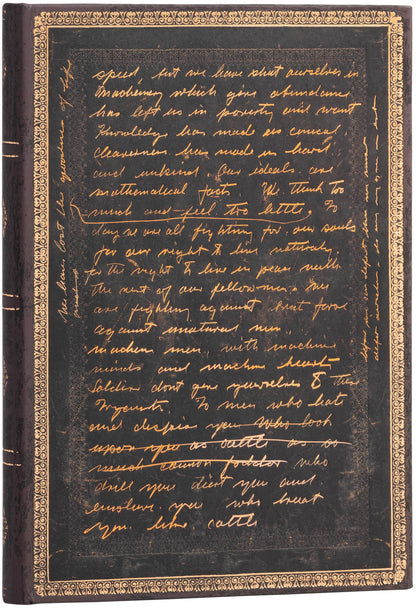 speed, but we have shut ourselves in
Machinery which gives abundance
has left us in poverty and want
Knowledge has made us cynical
cleverness has made us hard
and unkind. Our ideals are
mathematical fact. We think too
much and feel too little, To
day we are all fighting for our souls
for our right to live naturally
for the right to live in peace with
the rest of our fellowmen. We
are fighting against brut force
against unnatural men,
machine men, with machine
minds and machine hearts
Soldiers dont give yourselves to these
To men who hate
and despise you Who look
upon you as cattle as so
much cannon fodder who
drill you diet you and
enslave you who treat
you like cattle
We have lost the of life